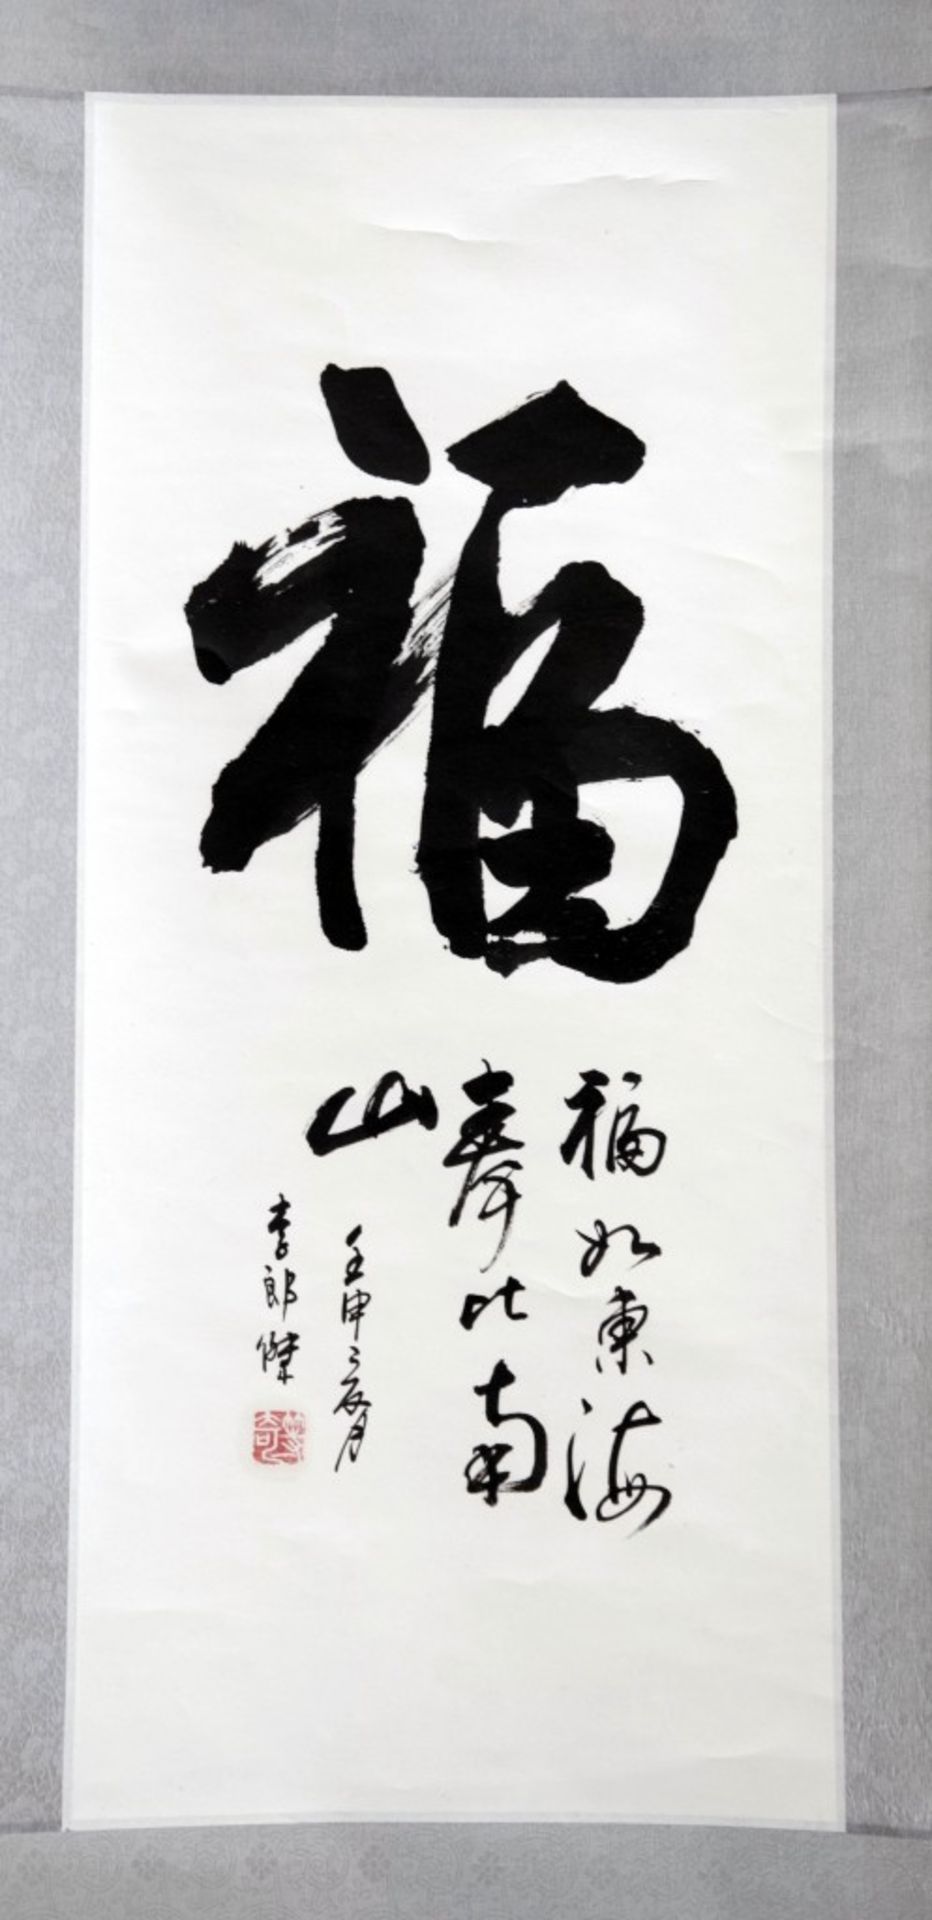 福
福如東海
壽比南
山
壬申之夏月
李郎傑